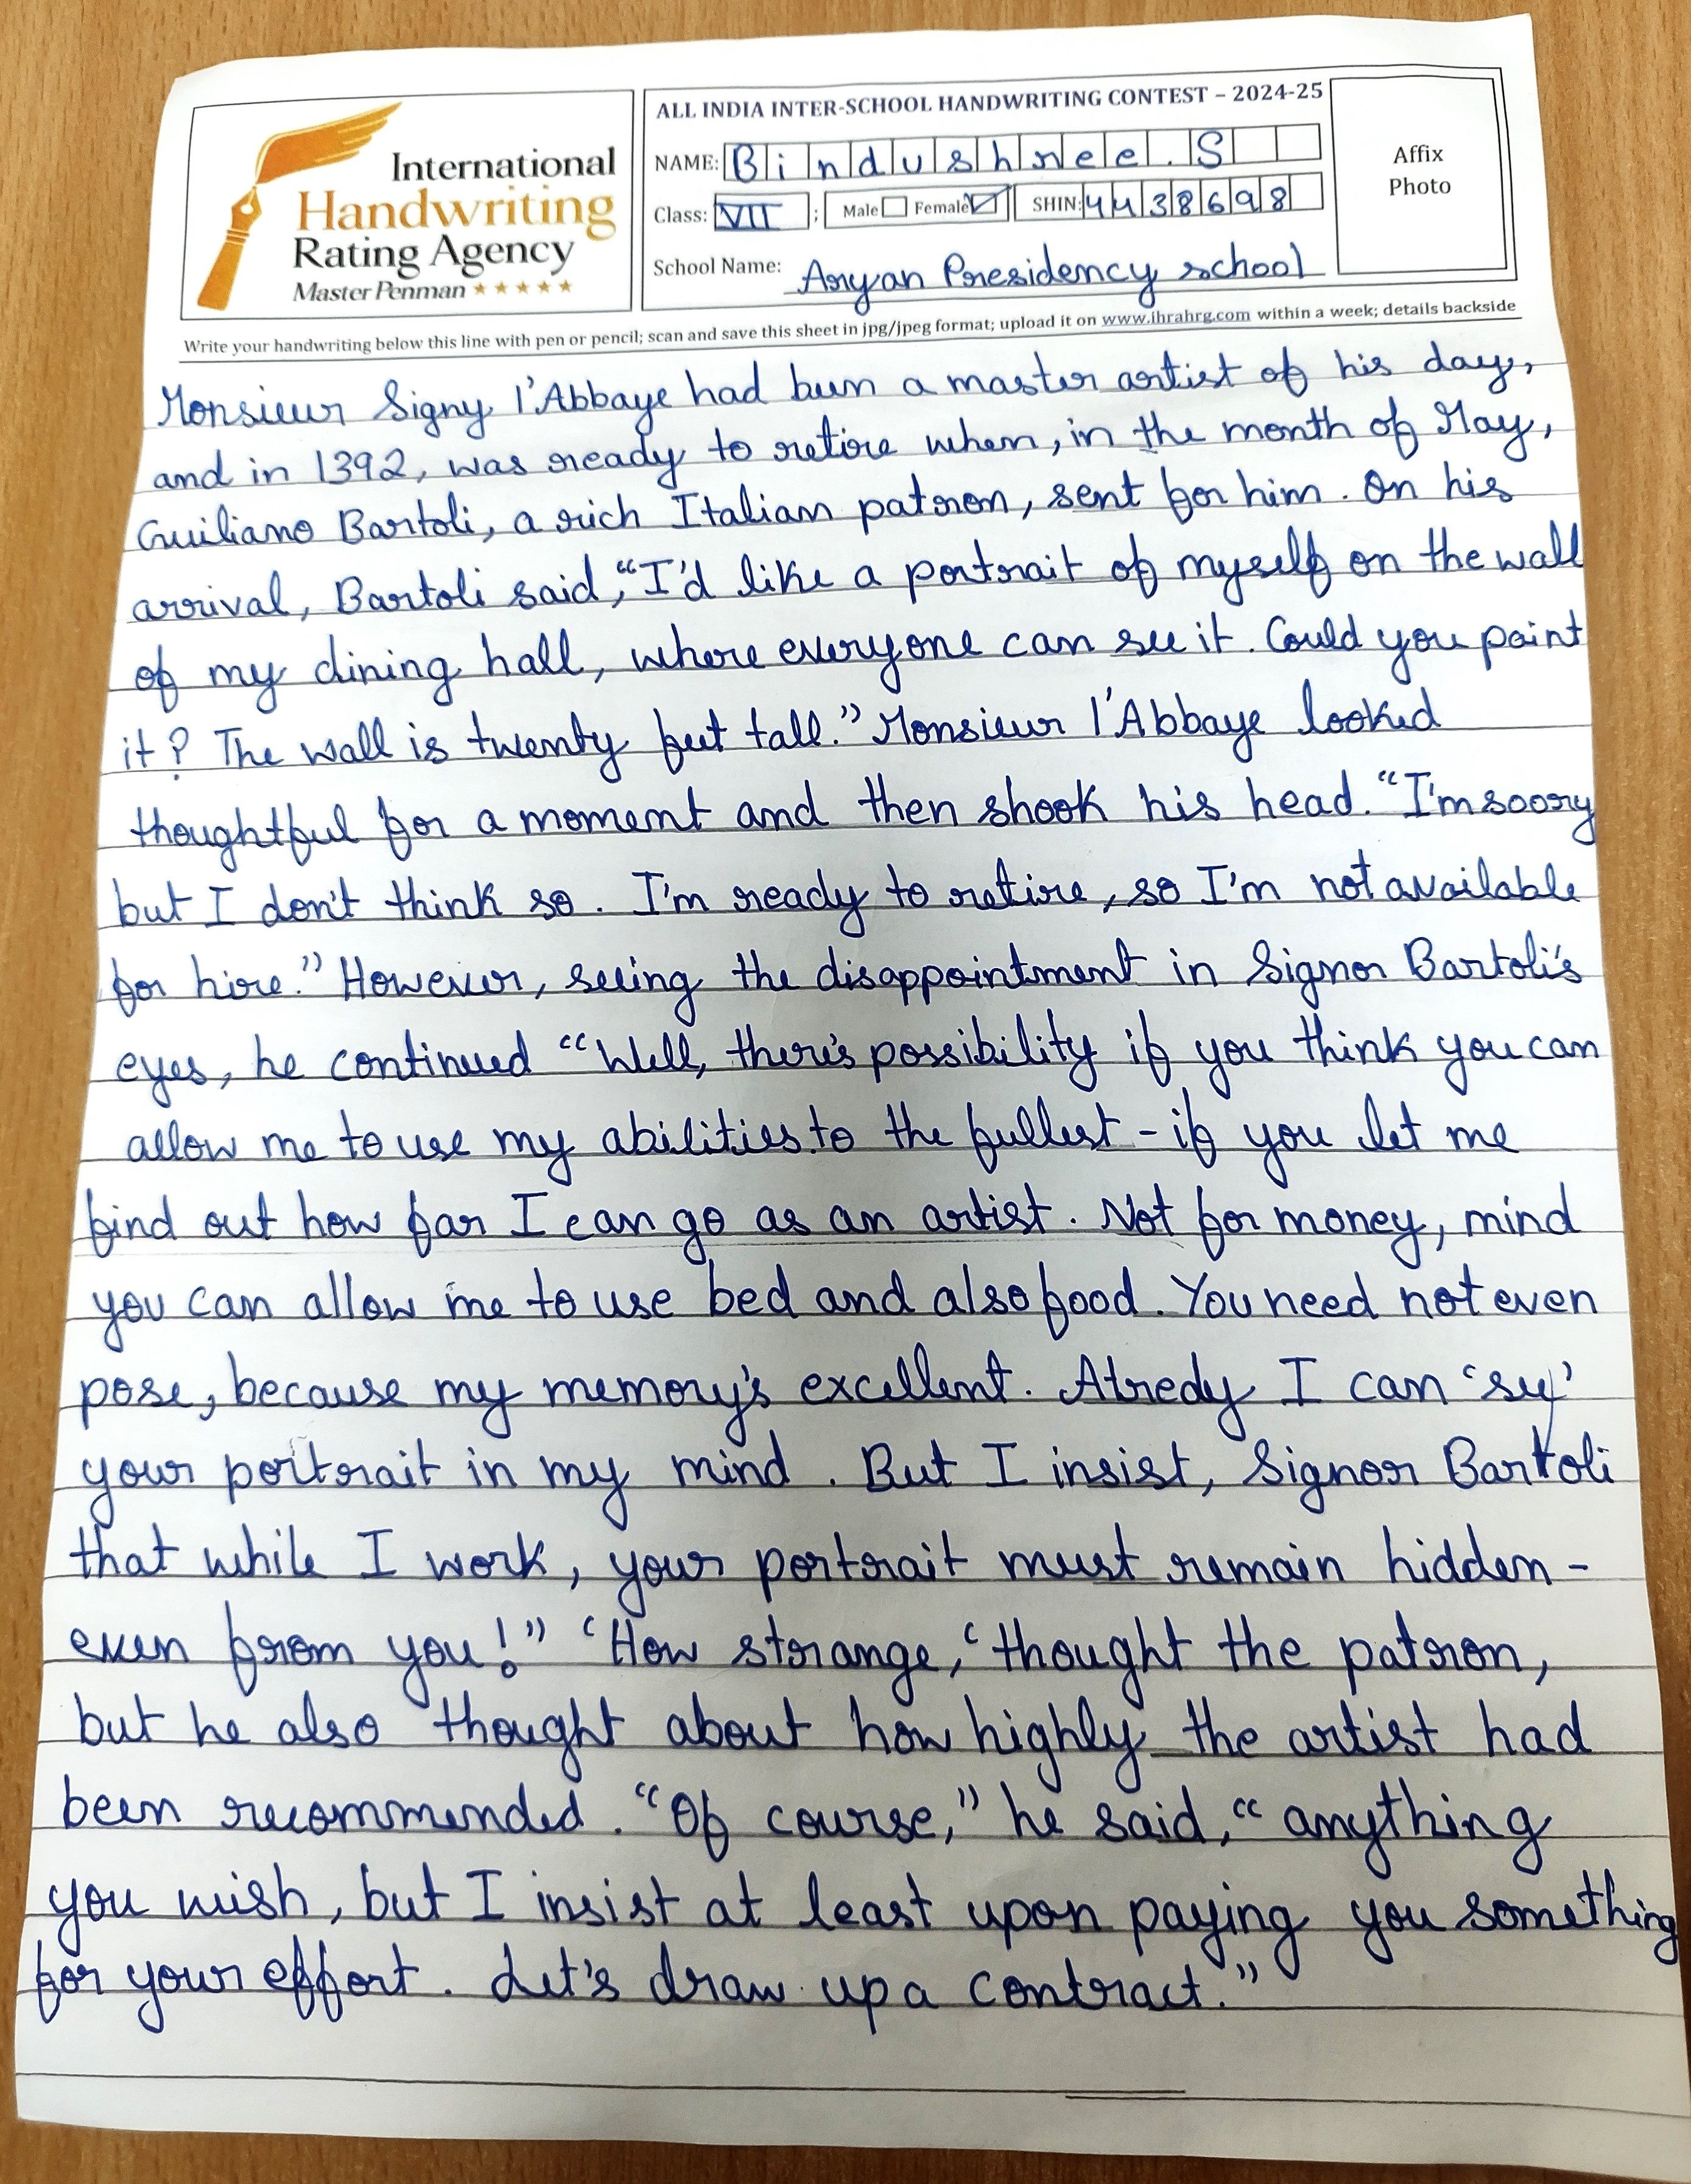 International
Handwriting
Rating Agency
Master Penman
ALL INDIA INTER-SCHOOL HANDWRITING CONTEST – 2024-25
NAME: Bindushree.S
Class: VII ; Male Female SHIN: 4438698
School Name: Aryan Presidency school
Affix
Photo
Write your handwriting below this line with pen or pencil; scan and save this sheet in jpg/jpeg format; upload it on www.ihrahrg.com within a week; details backside
Monsieur Signy l'Abbaye had been a master artist of his day,
and in 1392, was ready to retire when, in the month of May,
Guiliano Bartoli, a rich Italian patron, sent for him. On his
arrival, Bartoli said, "I'd like a portrait of myself on the wall
of my dining hall, where everyone can see it. Could you paint
it? The wall is twenty feet tall." Monsieur l'Abbaye looked
thoughtful for a moment and then shook his head. "I'm soory
but I don't think so. I'm ready to retire, so I'm not available
for hire." However, seeing the disappointment in Signor Bartoli's
eyes, he continued "Well, there's possibility if you think you can
allow me to use my abilities to the fullest - if you let me
find out how far I can go as an artist. Not for money, mind
you can allow me to use bed and also food. You need not even
pose, because my memory's excellent. Alredy I can 'see'
your portrait in my mind. But I insist, Signor Bartoli
that while I work, your portrait must remain hidden -
even from you!" 'How strange,' thought the patron,
but he also thought about how highly the artist had
been recommended. "Of course," he said, "anything
you wish, but I insist at least upon paying you something
for your effort. Let's draw up a contract."